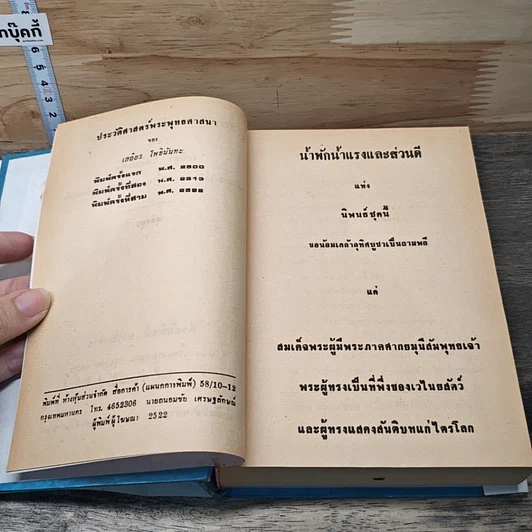 กบุ๊คกี้
ประวัติศาสตร์พระพุทธศาสนา
ของ
เสถียร โพธินันทะ
พิมพ์ครั้งแรก พ.ศ. 2500
พิมพ์ครั้งที่สอง พ.ศ. 2513
พิมพ์ครั้งที่สาม พ.ศ. 2522
พิมพ์ที่ ห้างหุ้นส่วนจำกัด สื่อการค้า (แผนกการพิมพ์) 58/10-12
กรุงเทพมหานคร โทร. 4652306 นายถนอมชัย เศรษฐลักษณ์
ผู้พิมพ์ผู้โฆษณา 2522
น้ำพักน้ำแรงและส่วนดี
แห่ง
นิพนธ์ชุดนี้
ขอน้อมเกล้าอุทิศบูชาเป็นถามพลี
แด่
สมเด็จพระผู้มีพระภาคศากยมุนีสัมพุทธเจ้า
พระผู้ทรงเป็นที่พึ่งของเวไนยสัตว์
และผู้ทรงแสดงสันติบทแก่ไตรโลก